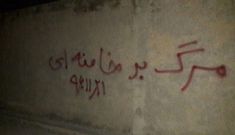 مرگ بر خامنه ای
۹۶۱۱۲۱